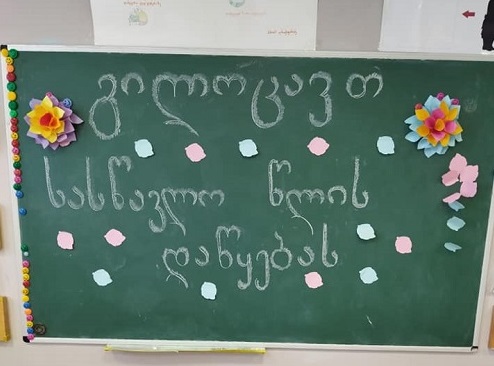 გილოცავთ
სასწავლო წლის
დაწყებას